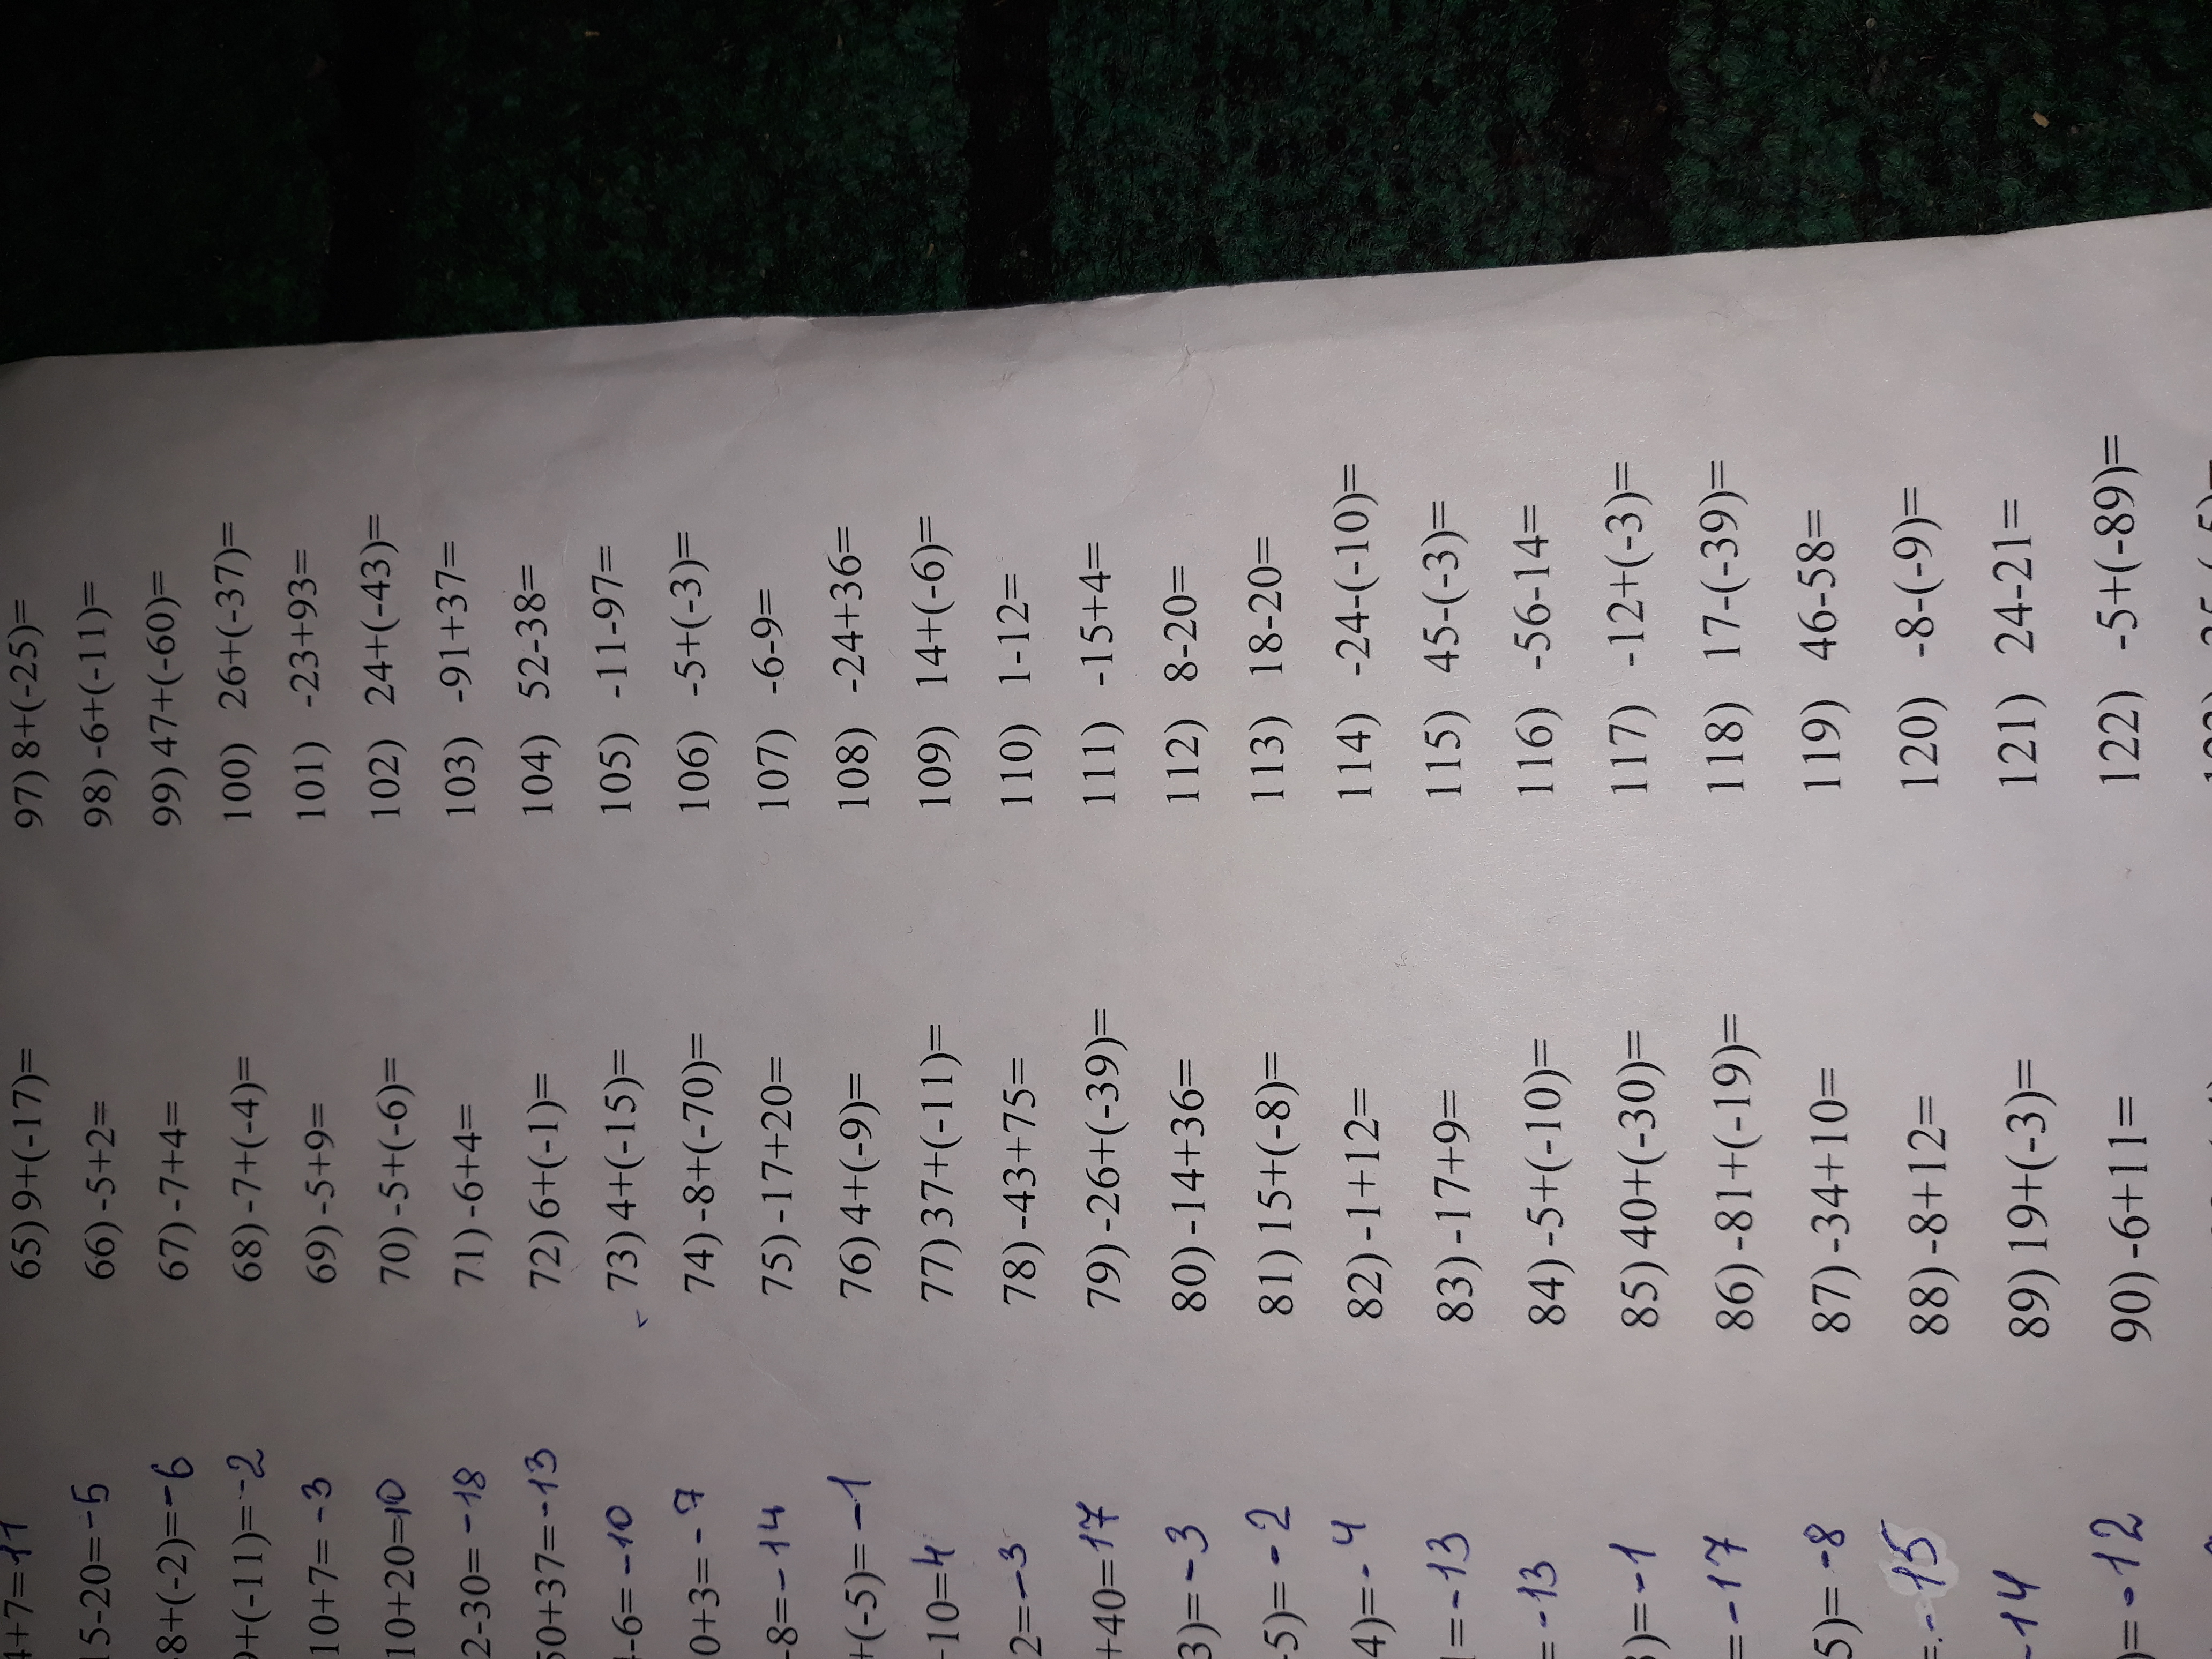 4+7=11
15-20=-5
8+(-2)=-6
+(-11)=-2
10+7=-3
10+20=10
2-30=-18
50+37=-13
-6=-10
0+3=-7
-8=-14
+(-5)=-1
-10=4
2=-3
+40=17
3)=-3
-5)=-2
4)=-4
=-13
=-13
)=-1
=-17
5)=-8
=-15
-14
)=-12
65) 9+(-17)=
66) -5+2=
67) -7+4=
68) -7+(-4)=
69) -5+9=
70) -5+(-6)=
71) -6+4=
72) 6+(-1)=
73) 4+(-15)=
74) -8+(-70)=
75) -17+20=
76) 4+(-9)=
77) 37+(-11)=
78) -43+75=
79) -26+(-39)=
80) -14+36=
81) 15+(-8)=
82) -1+12=
83) -17+9=
84) -5+(-10)=
85) 40+(-30)=
86) -81+(-19)=
87) -34+10=
88) -8+12=
89) 19+(-3)=
90) -6+11=
97) 8+(-25)=
98) -6+(-11)=
99) 47+(-60)=
100) 26+(-37)=
101) -23+93=
102) 24+(-43)=
103) -91+37=
104) 52-38=
105) -11-97=
106) -5+(-3)=
107) -6-9=
108) -24+36=
109) 14+(-6)=
110) 1-12=
111) -15+4=
112) 8-20=
113) 18-20=
114) -24-(-10)=
115) 45-(-3)=
116) -56-14=
117) -12+(-3)=
118) 17-(-39)=
119) 46-58=
120) -8-(-9)=
121) 24-21=
122) -5+(-89)=